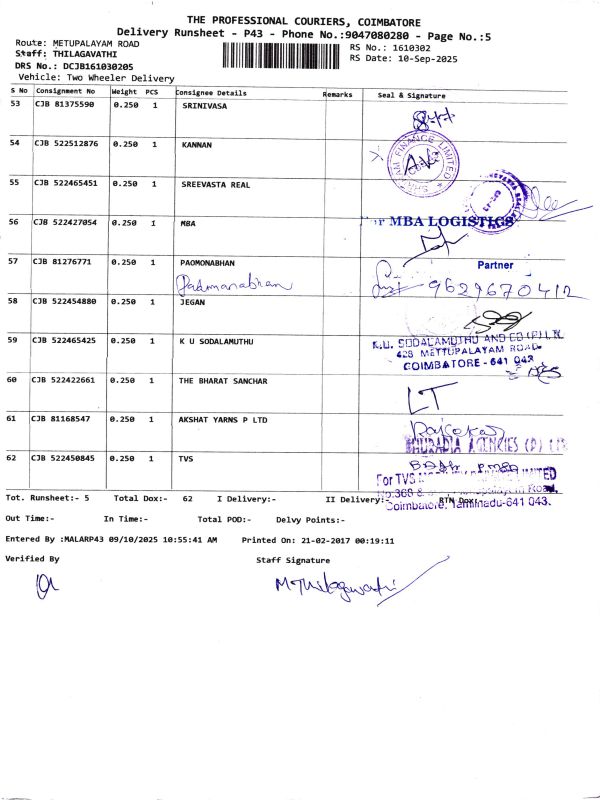 THE PROFESSIONAL COURIERS, COIMBATORE
Delivery Runsheet - P43 - Phone No.:9047080280 - Page No.:5
Route: METUPALAYAM ROAD
Staff: THILAGAVATHI
DRS No.: DCJB161030205
Vehicle: Two Wheeler Delivery
RS No.: 1610302
RS Date: 10-Sep-2025
S No Consignment No Weight PCS Consignee Details Remarks Seal & Signature
53 CJB 81375590 0.250 1 SRINIVASA
54 CJB 522512876 0.250 1 KANNAN
FINANCE LIMITED
55 CJB 522465451 0.250 1 SREEVASTA REAL
56 CJB 522427054 0.250 1 MBA
For MBA LOGISTICS
Partner
57 CJB 81276771 0.250 1 PAOMONABHAN
Padmanabhan
9629670412
58 CJB 522454880 0.250 1 JEGAN
59 CJB 522465425 0.250 1 K U SODALAMUTHU
K.U. SODALAMUTHU AND CO (P) LTD.
428 METTUPALAYAM ROAD.
COIMBATORE - 641 043.
60 CJB 522422661 0.250 1 THE BHARAT SANCHAR
LT
61 CJB 81168547 0.250 1 AKSHAT YARNS P LTD
AGENCIES (P)
62 CJB 522450845 0.250 1 TVS
For TVS LIMITED
Road,
Coimbatore, Tamilnadu-641 043.
Tot. Runsheet:- 5 Total Dox:- 62 I Delivery:- II Delivery:- RTN Dox:-
Out Time:- In Time:- Total POD:- Delvy Points:-
Entered By :MALARP43 09/10/2025 10:55:41 AM Printed On: 21-02-2017 00:19:11
Verified By Staff Signature
M Thilagavathi